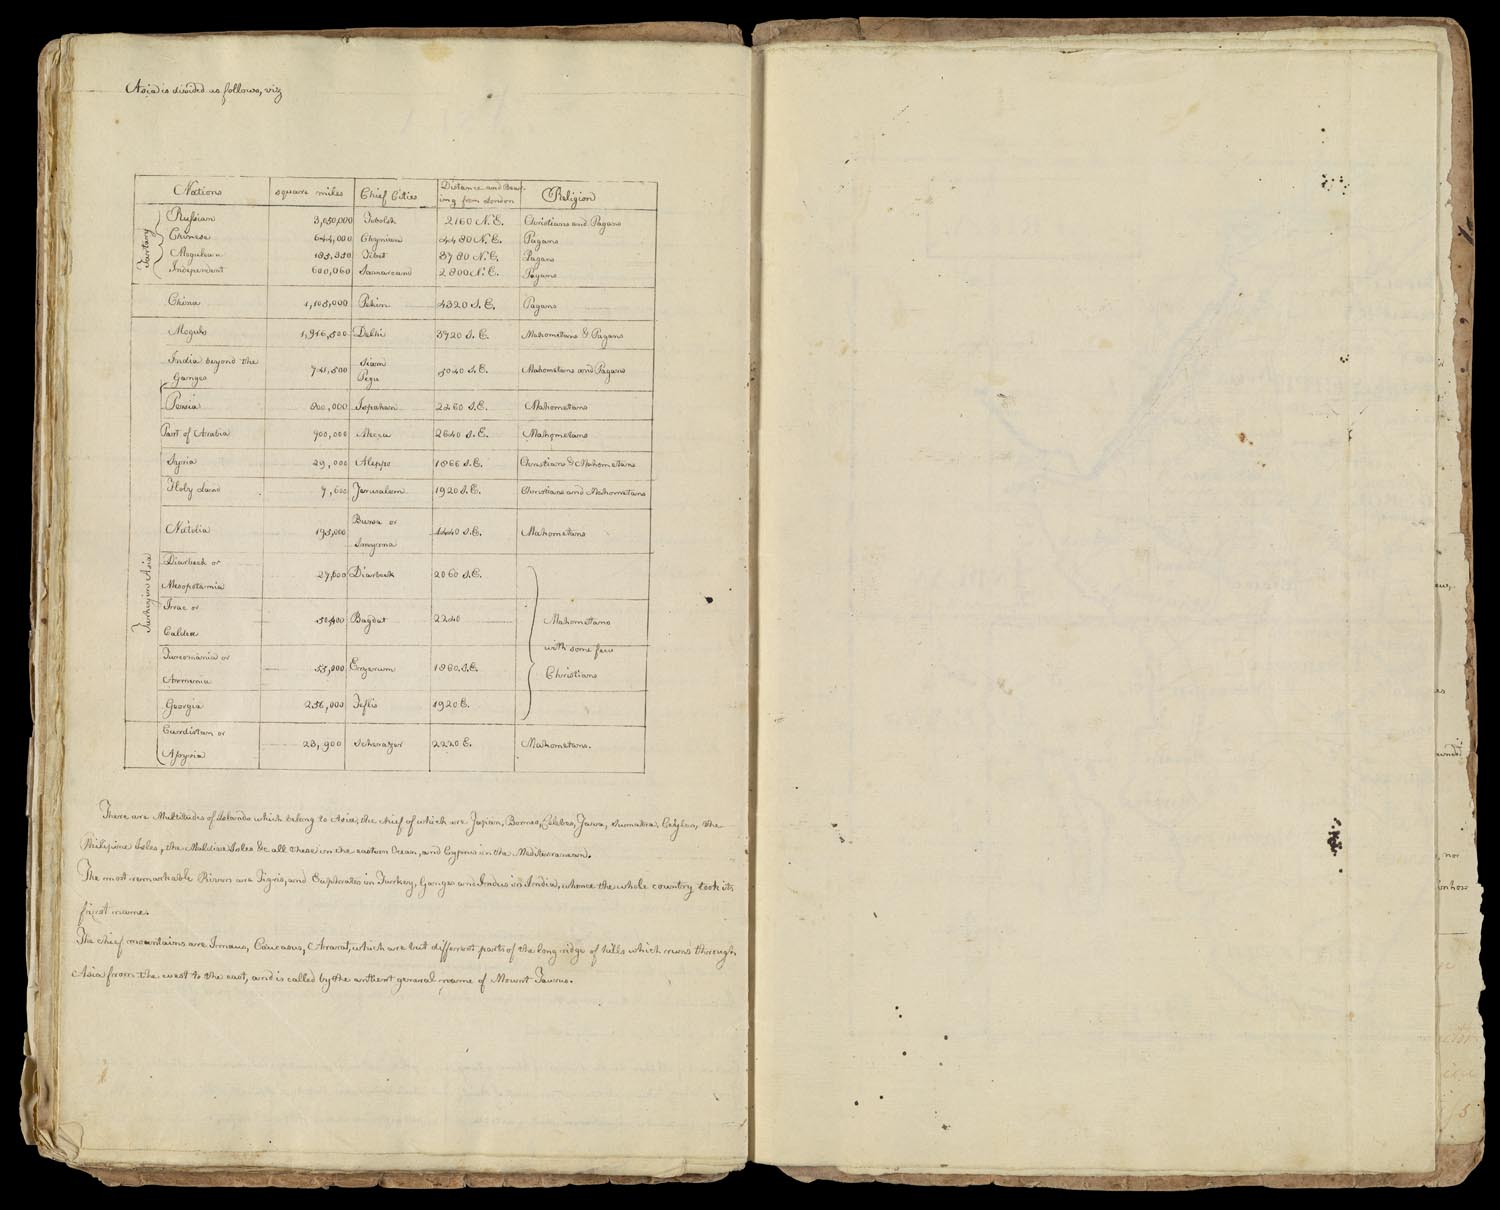 Asia is divided as follows, viz
Nations square miles Chief Cities Distance and Bear-
ing from London Religion
Tartary
Russian 3,050,000 Tobolsk 2160 N.E. Christians and Pagans
Chinese 644,000 Chynian 4480 N.E. Pagans
Mogulean 185,350 Tibet 3780 N.E. Pagans
Independent 600,060 Samarcand 2800 N.E. Pagans
China 1,105,000 Pekin 4320 S.E. Pagans
Moguls 1,916,500 Delhi 3720 S.E. Mahometans & Pagans
India beyond the
Ganges 741,500 Siam
Pegu 5040 S.E. Mahometans and Pagans
Persia 800,000 Ispahan 2260 S.E. Mahometans
Part of Arabia 700,000 Mecca 2640 S.E. Mahometans
Syria 29,000 Aleppo 1866 S.E. Christians & Mahometans
Holy Land 7,600 Jerusalem 1920 S.E. Christians and Mahometans
Turkey in Asia
Natolia 195,000 Bursa or
Smyrna 1440 S.E. Mahometans
Diarbeck or
Mesopotamia 27,600 Diarbeck 2060 S.E.
Irrac or
Caldea 50,400 Bagdat 2240 Mahometans
with some few
Turcomania or
Armenia 55,000 Erzerum 1860 S.E. Christians
Georgia 256,000 Teflis 1920 E.
Curdistan or
Assyria 23,900 Scherazer 2220 E. Mahometans.
There are Multitudes of Islands which belong to Asia, the chief of which are Japan, Borneo, Celebes, Java, Sumatra, Ceylon, the
Philipine Isles, the Maldive Isles &c all these in the eastern Ocean, and Cyprus in the Mediterranean.
The most remarkable Rivers are Tigris, and Euphrates in Turkey, Ganges and Indus in India, whence the whole country took its
first name.
The chief mountains are Imaus, Caucasus, Ararat, which are but different parts of the long ridge of hills which runs through
Asia from the west to the east, and is called by the antient general name of Mount Taurus.